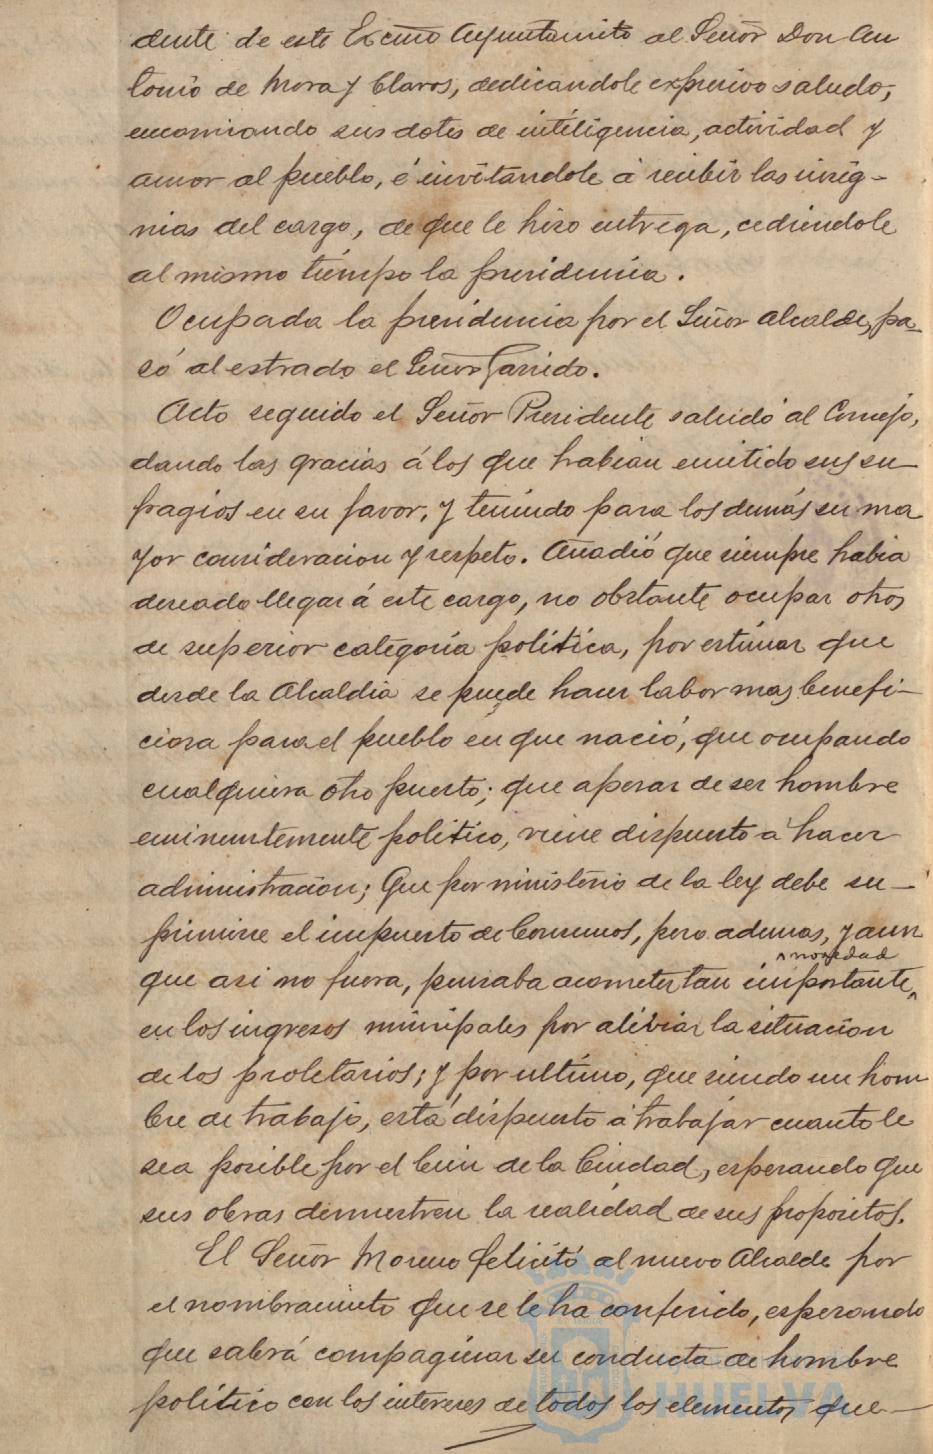 dente de este Excmo Ayuntamito al Señor Don An
tonio de Mora y Claros, dedicandole expresivo saludo,
encomiando sus dotes de inteligencia, actividad y
amor al pueblo, é invitandole á recibir las insig-
nias del cargo, de que le hizo entrega, cediendole
al mismo tiempo la presidencia.
Ocupada la presidencia por el Señor Alcalde, pa-
só al estrado el Señor Garrido.
Acto seguido el Señor Presidente saludó al Concejo,
dando las gracias á los que habian emitido sus su-
fragios en su favor, y teniendo para los demás su ma
yor consideracion y respeto. Añadió que siempre habia
deseado llegar á este cargo, no obstante ocupar otros
de superior categoría política, por estimar que
desde la Alcaldia se puede hacer labor mas benefi-
ciosa para el pueblo en que nació, que ocupando
cualquiera otro puesto; que apesar de ser hombre
eminentemente politico, viene dispuesto á hacer
administracion; Que por ministerio de la ley debe su-
primirse el impuesto de Consumos, pero ademas, y aun
novedad
que asi no fuera, pensaba acometer tan importante,
en los ingresos municipales por aliviar la situacion
de los proletarios; y por ultimo, que siendo un hom
bre de trabajo, está dispuesto á trabajar cuanto le
sea posible por el bien de la Ciudad, esperando que
sus obras demuestren la realidad de sus propositos.
El Señor Moreno felicitó al nuevo Alcalde por
el nombramiento que se le ha conferido, esperando
que sabrá compaginar su conducta de hombre
político con los intereses de todos los elementos que-
HUELVA